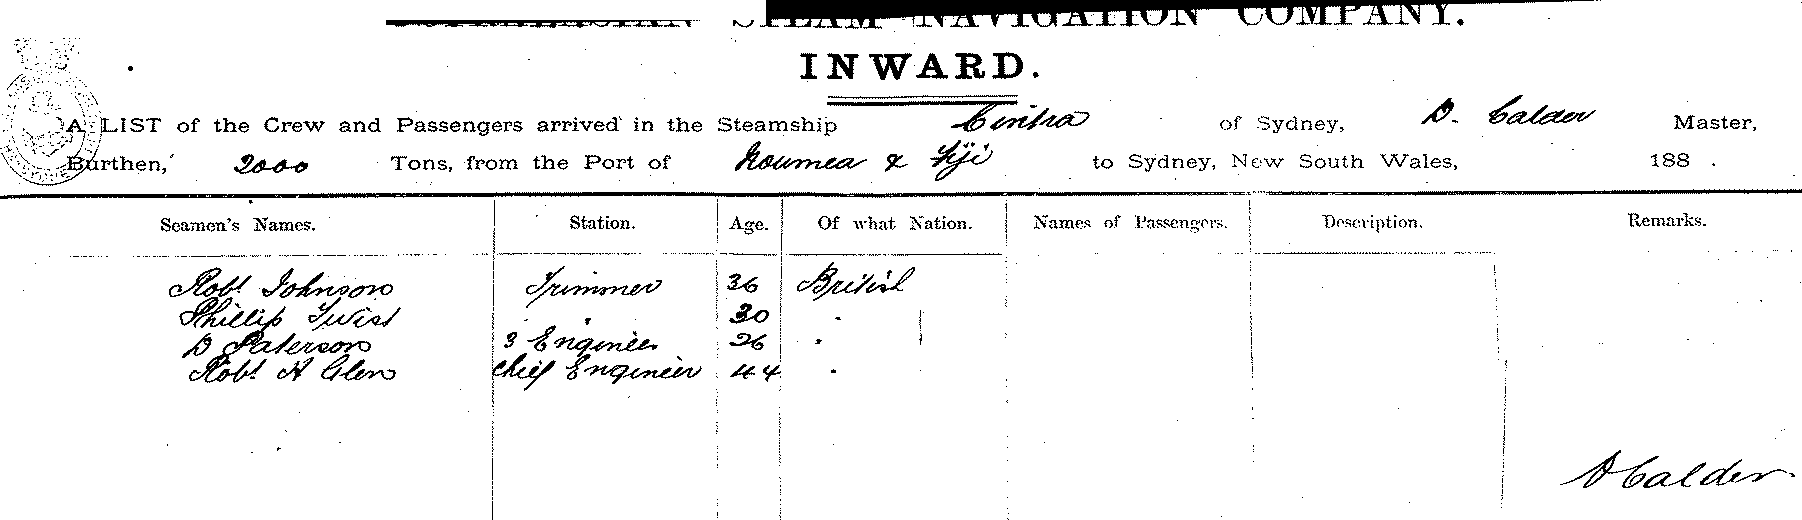 STEAM NAVIGATION COMPANY.
INWARD.
A LIST of the Crew and Passengers arrived in the Steamship Cintra of Sydney, D. Calder Master,
Burthen, 2000 Tons, from the Port of Noumea & Fiji to Sydney, New South Wales, 188 .
Seamen's Names. Station. Age. Of what Nation. Names of Passengers. Description. Remarks.
Robt Johnson Trimmer 36 British
Phillip Twist " 30 "
D Paterson 3 Engineer 26 "
Robt H Glen Chief Engineer 44 "
D Calder